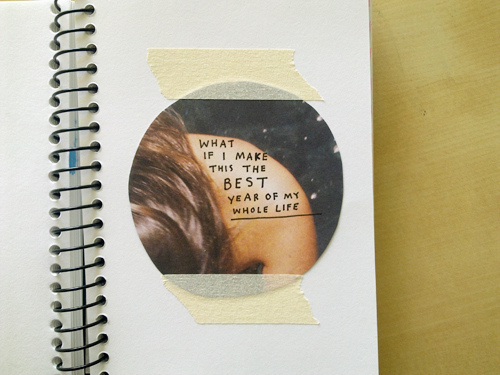 WHAT
IF I MAKE
THIS THE
BEST
YEAR OF MY
WHOLE LIFE